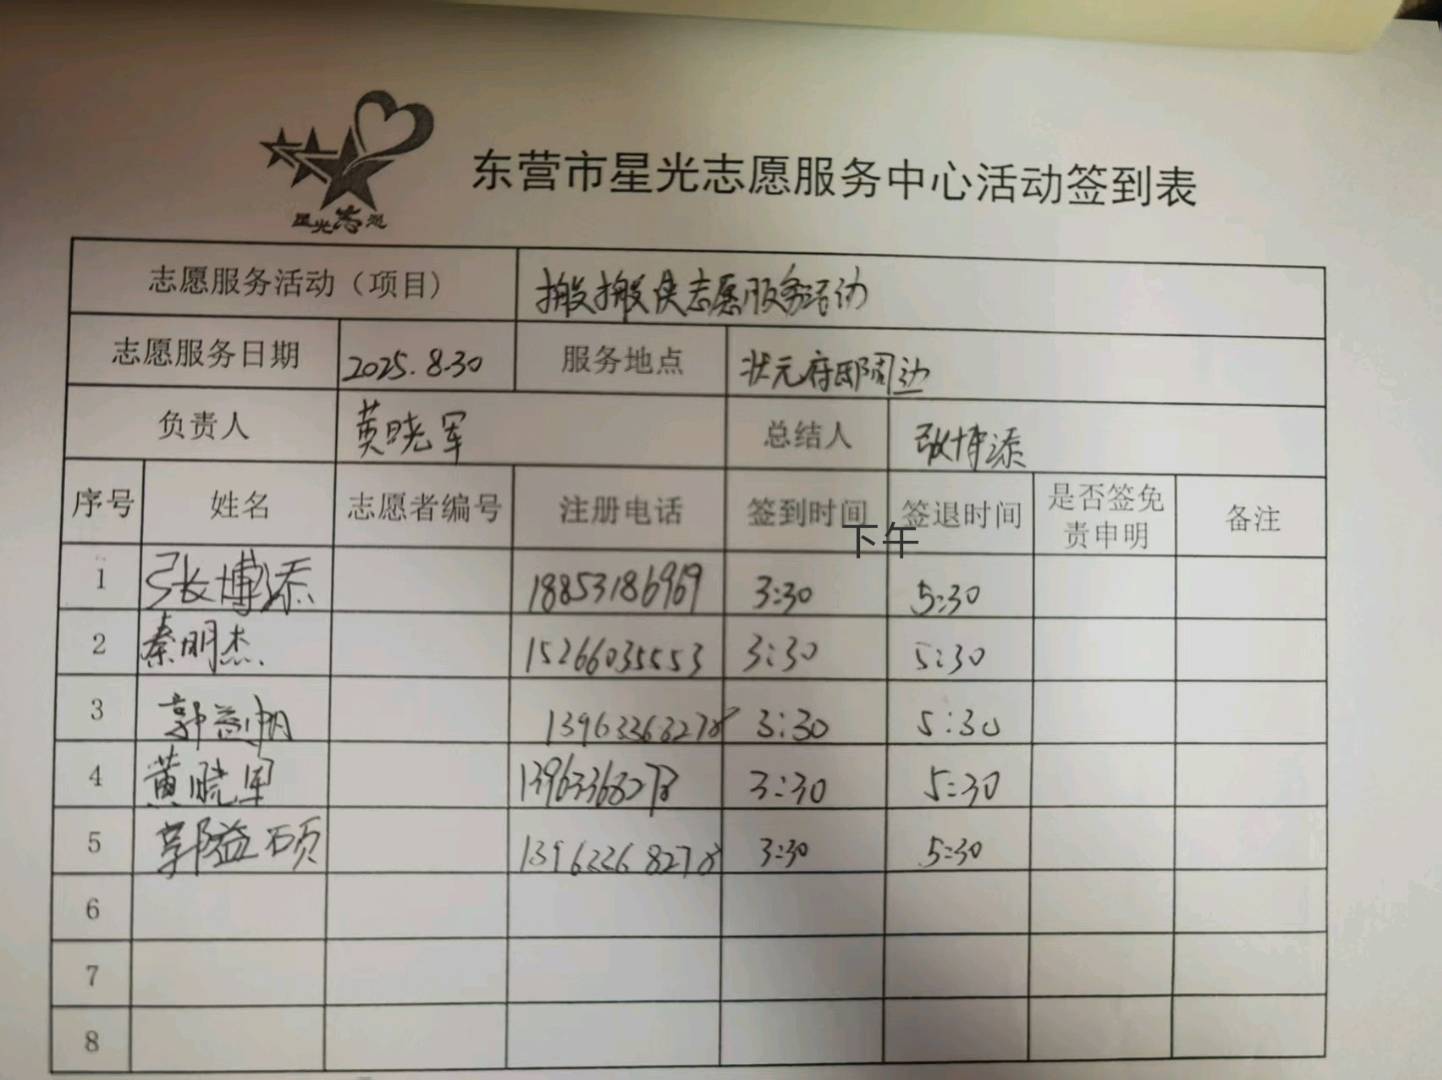 星光志愿
东营市星光志愿服务中心活动签到表
志愿服务活动（项目） 搬搬侠志愿服务活动
志愿服务日期 2025.8.30 服务地点 状元府邸周边
负责人 黄晓军 总结人 张博添
序号 姓名 志愿者编号 注册电话 签到时间 签退时间 是否签免责申明 备注
下午
1 张博添 18853186969 3:30 5:30
2 秦明杰 15266035553 3:30 5:30
3 郭益帆 13963368278 3:30 5:30
4 黄晓军 13963368278 3:30 5:30
5 郭益硕 13963368278 3:30 5:30
6
7
8